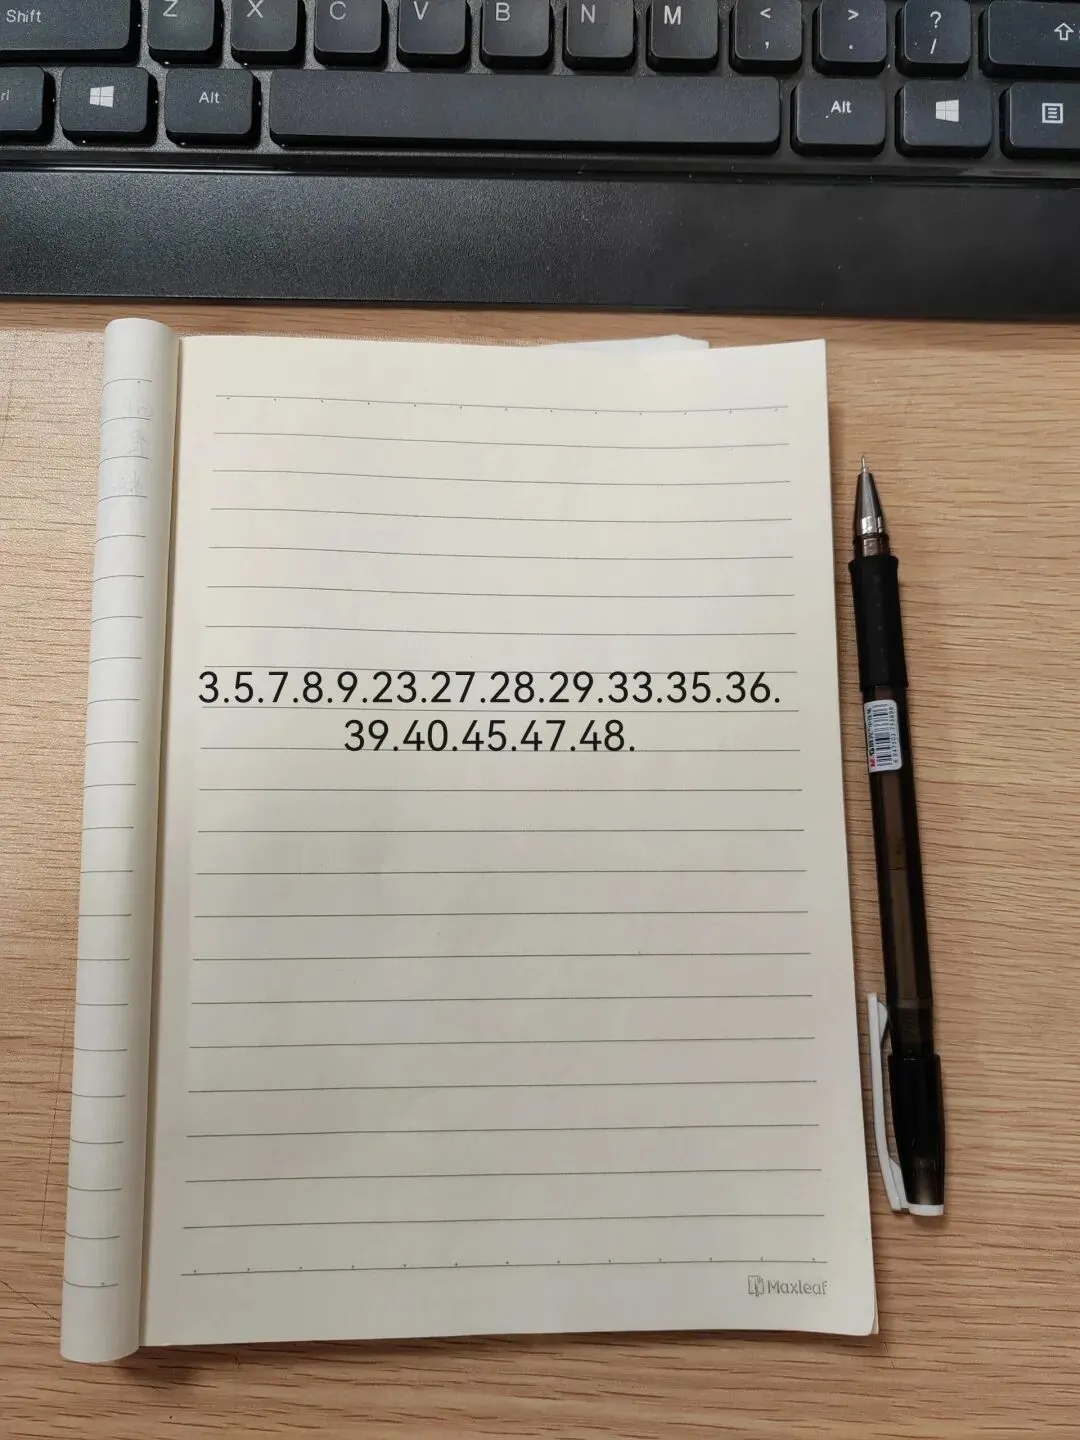 Shift Z X C V B N M < , > . ? /
Alt Alt
3.5.7.8.9.23.27.28.29.33.35.36.
39.40.45.47.48.
Maxleaf